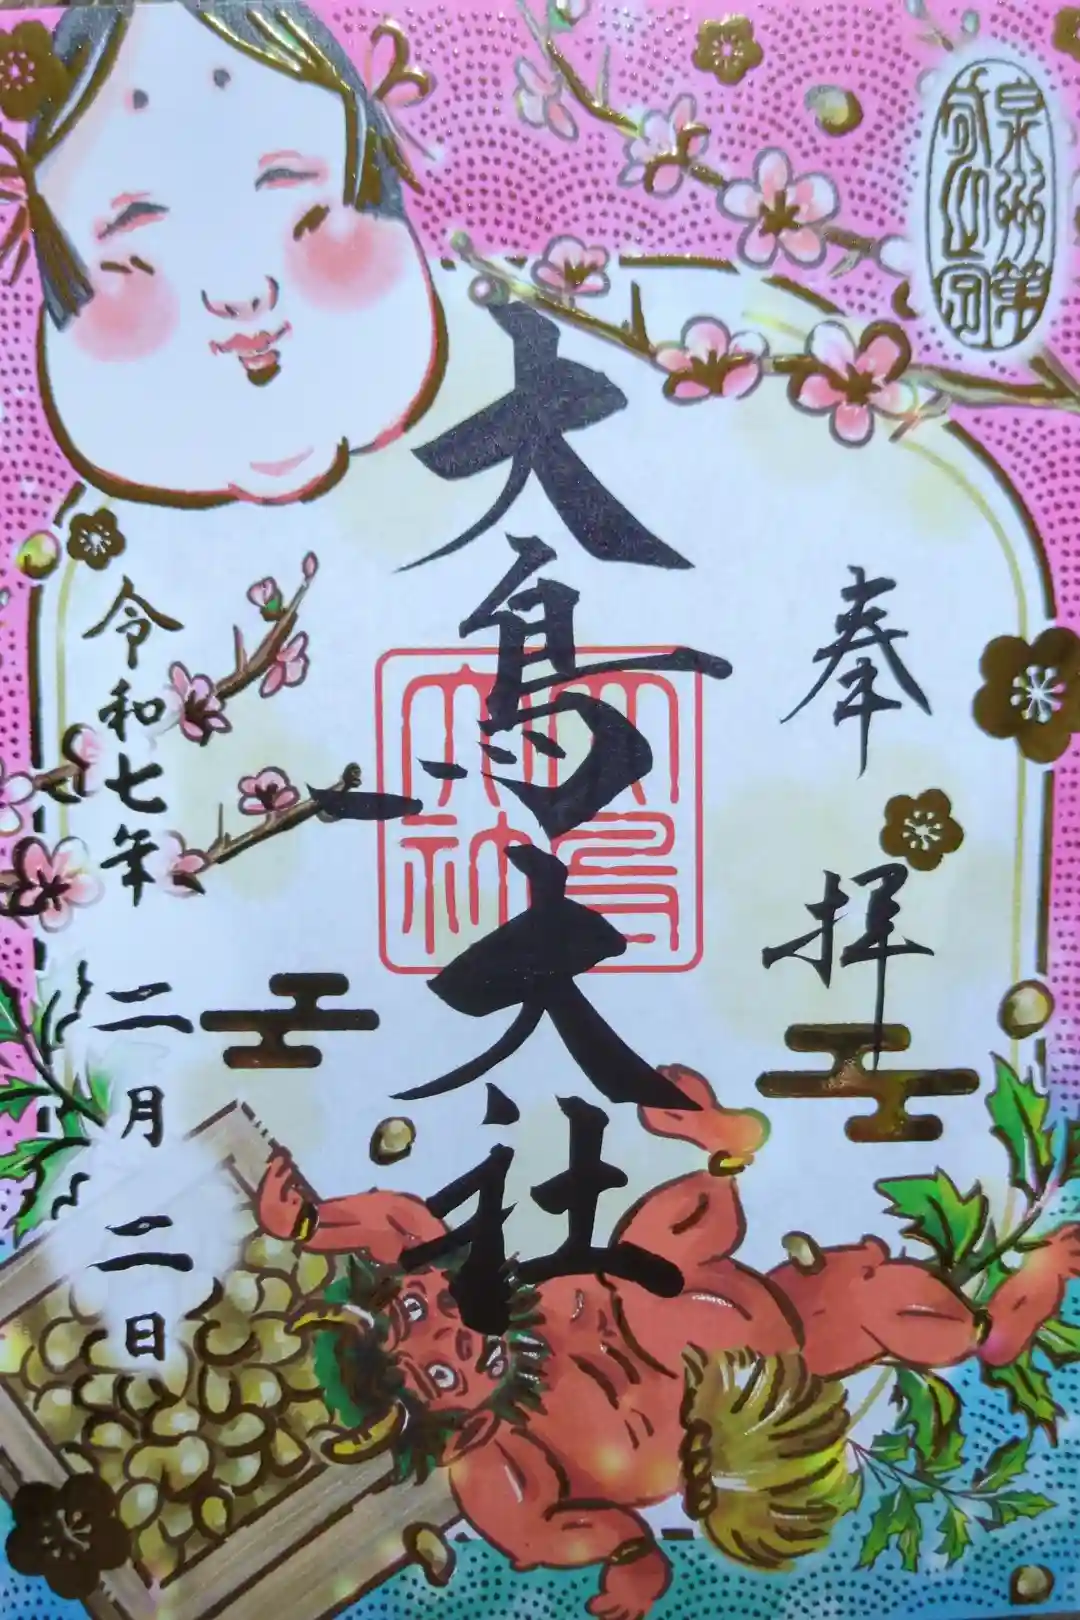 泉州第
奉拝
大鳥大社
大鳥
大社
令和七年二月二日